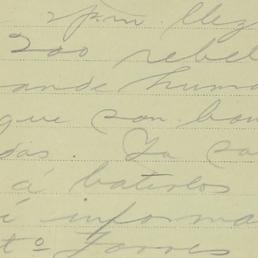 2 p.m. llez
200 rebel
ande huma
que son ban
das. Ya sa
á batirlos
é informa
to Torres